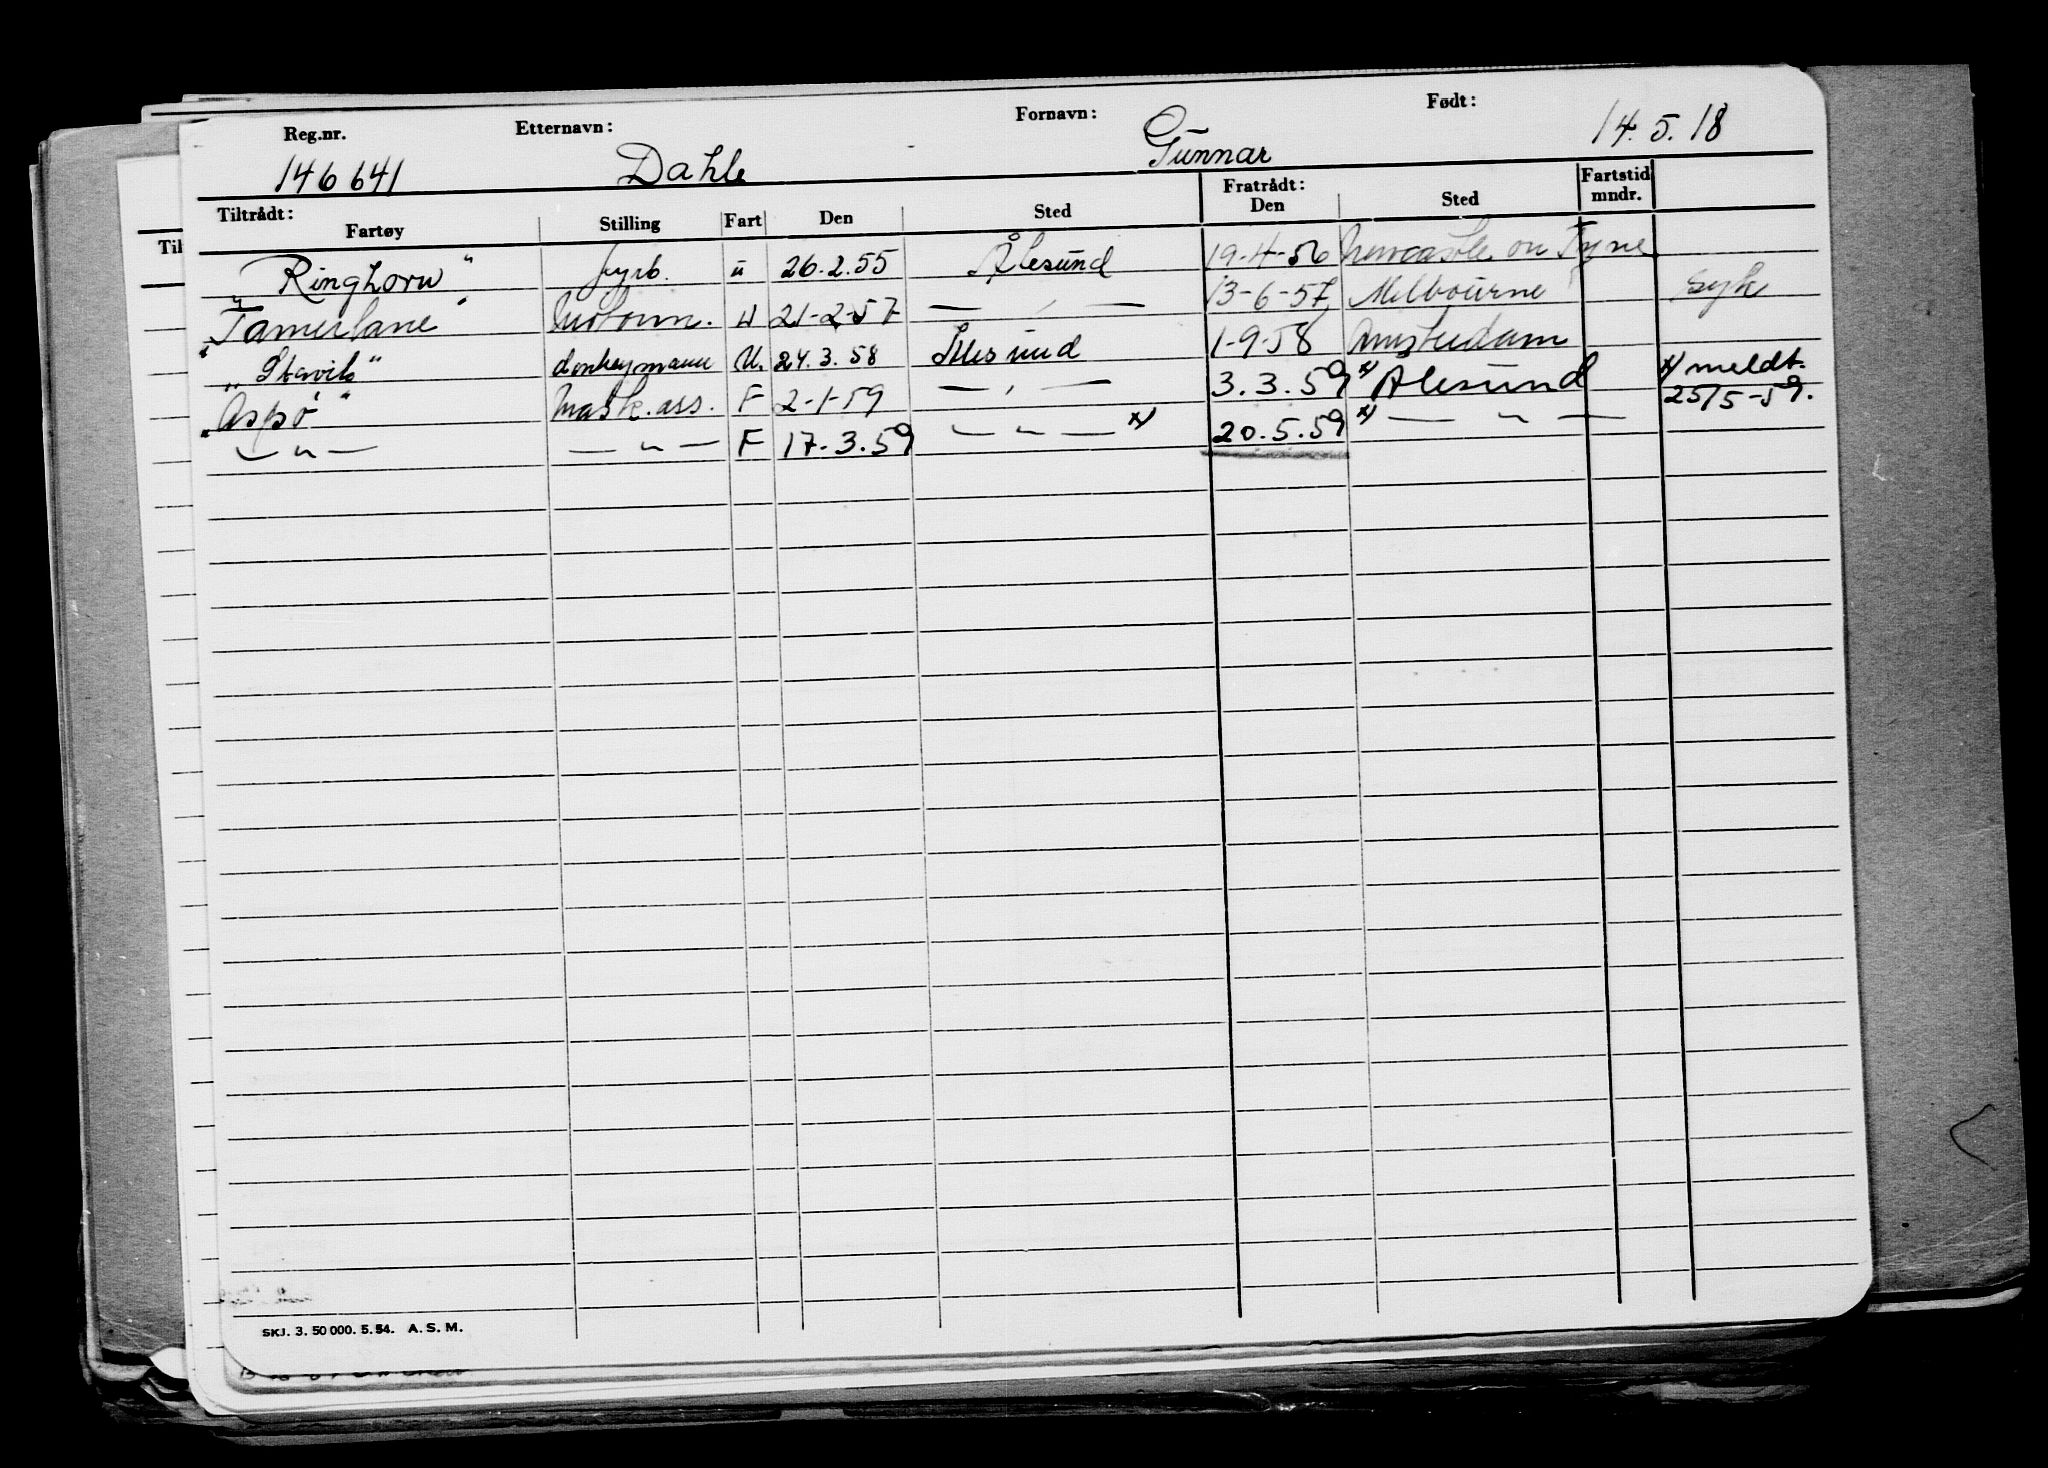 Reg.nr. Etternavn: Fornavn: Født:
146641 Dahle Gunnar 14.5.18
Tiltrådt: Fratrådt: Fartstid
Fartøy Stilling Fart Den Sted Den Sted mndr.
"Ringhorn" fyrb. u 26.2.55 Ålesund 19-4-56 Newcastle on Tyne
"Tamerlane" Motorm. U 21-2-57 — " — 13-6-57 Melbourne syk
"Stavik" donkeymann U. 24.3.58 Ålesund 1-9-58 Amsterdam
"Aspø" Mask.ass. F 2-1-59 — " — 3.3.59 x) Ålesund x) meldt.
— " — — " — F 17-3.59 — " — x) 20.5.59 x) — " — 25/5-59.
SKJ. 3. 50 000. 5. 54. A. S. M.